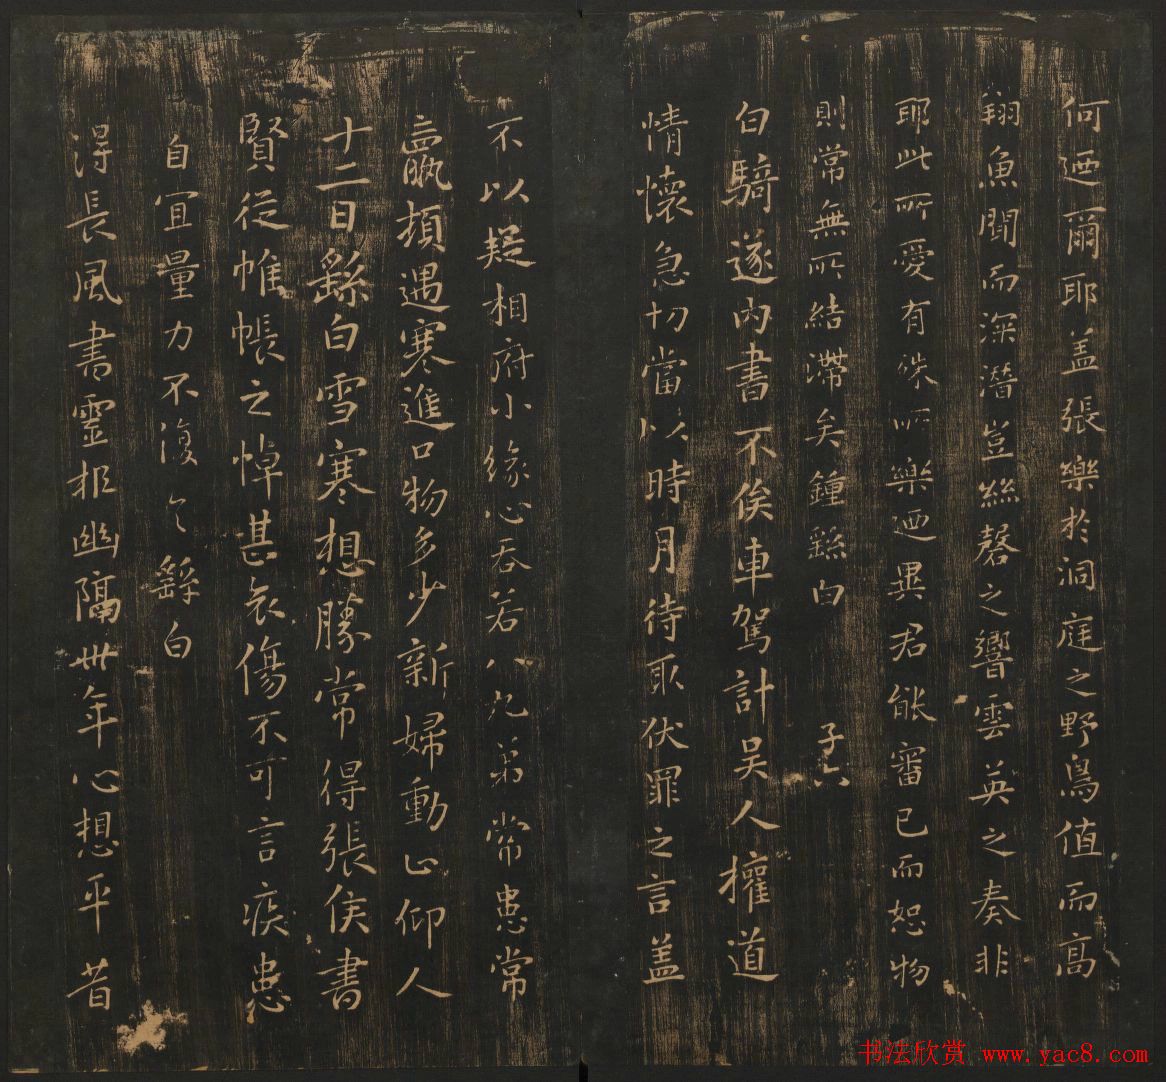 何迺爾耶蓋張樂於洞庭之野鳥值而高
翔魚聞而深潛豈絲磬之響雲英之奏非
耶此所愛有殊所樂迺異君能審己而恕物
則常無所結滯矣鍾繇白
子六
白騎遂內書不俟車駕計吳人權道
情懷急切當以時月待取伏罪之言蓋
不以疑相府小緣心吞若八九弟常患常
羸頓遇寒進口物多少新婦動止仰人
十二日繇白雪寒想勝常得張侯書
賢從帷帳之悼甚哀傷不可言疾患
自宜量力不復々繇白
得長風書靈柩幽隔卅年心想平昔
书法欣赏 www.yac8.com